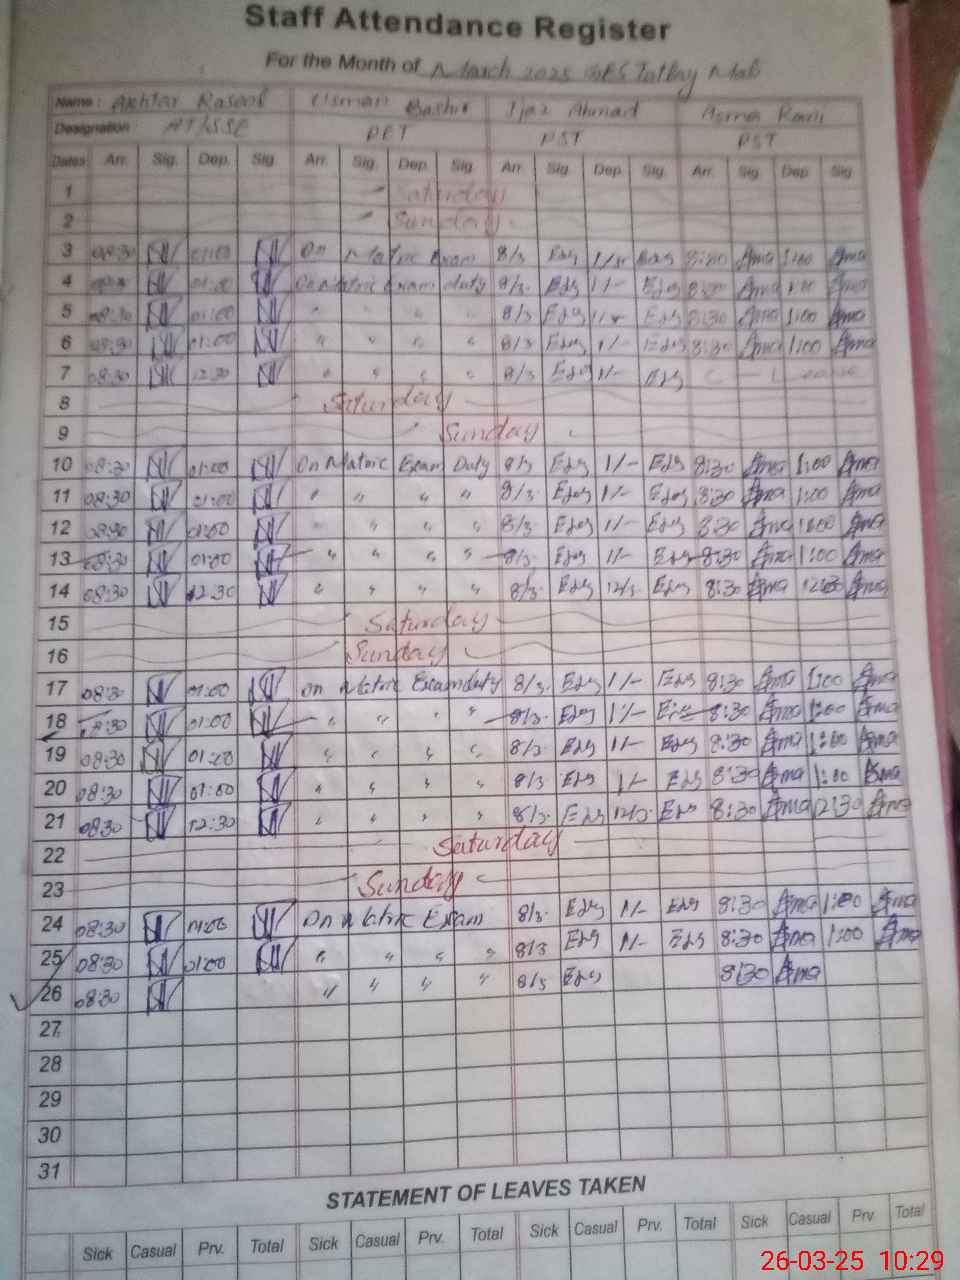 Staff Attendance Register
For the Month of March 2025
Name: Akhtar Rasool Usman Bashir Ijaz Ahmad Asma Rani
Designation AT/SSE PET PST PST
Dates Arr. Sig. Dep. Sig. Arr. Sig. Dep. Sig. Arr. Sig. Dep. Sig. Arr. Sig. Dep. Sig.
1 Saturday
2 Sunday
3 08:30 01:00 On Matric Exam 8/3 8:30 Ama 1:00 Ama
4 01:00 On Matric Exam duty 8/3 1/- Ama Ama
5 08:30 01:00 " " " " 8/3 8:30 Ama 1:00 Ama
6 08:30 01:00 " " " " 8/3 1/- 8:30 Ama 1:00 Ama
7 08:30 12:30 " " " " 8/3 1/- C - Leave
8 Saturday
9 Sunday
10 08:30 01:00 On Matric Exam Duty 8/3 1/- 8:30 Ama 1:00 Ama
11 08:30 01:00 " " " " 8/3 1/- 8:30 Ama 1:00 Ama
12 08:30 01:00 " " " " 8/3 1/- 8:30 Ama 1:00 Ama
13 08:30 01:00 " " " " 8/3 1/- 8:30 Ama 1:00 Ama
14 08:30 12:30 " " " " 8/3 12/3 8:30 Ama 12:30 Ama
15 Saturday
16 Sunday
17 08:30 01:00 On Matric Exam duty 8/3 1/- 8:30 Ama 1:00 Ama
18 08:30 01:00 " " " " 8/3 1/- 8:30 Ama 1:00 Ama
19 08:30 01:00 " " " " 8/3 1/- 8:30 Ama 1:00 Ama
20 08:30 01:00 " " " " 8/3 1/- 8:30 Ama 1:00 Ama
21 08:30 12:30 " " " " 8/3 12/3 8:30 Ama 12:30 Ama
22 Saturday
23 Sunday
24 08:30 01:00 On Matric Exam 8/3 1/- 8:30 Ama 1:00 Ama
25 08:30 01:00 " " " " 8/3 1/- 8:30 Ama 1:00 Ama
26 08:30 " " " " 8/3 8:30 Ama
27
28
29
30
31
STATEMENT OF LEAVES TAKEN
Sick Casual Prv. Total Sick Casual Prv. Total Sick Casual Prv. Total Sick Casual Prv. Total
26-03-25 10:29